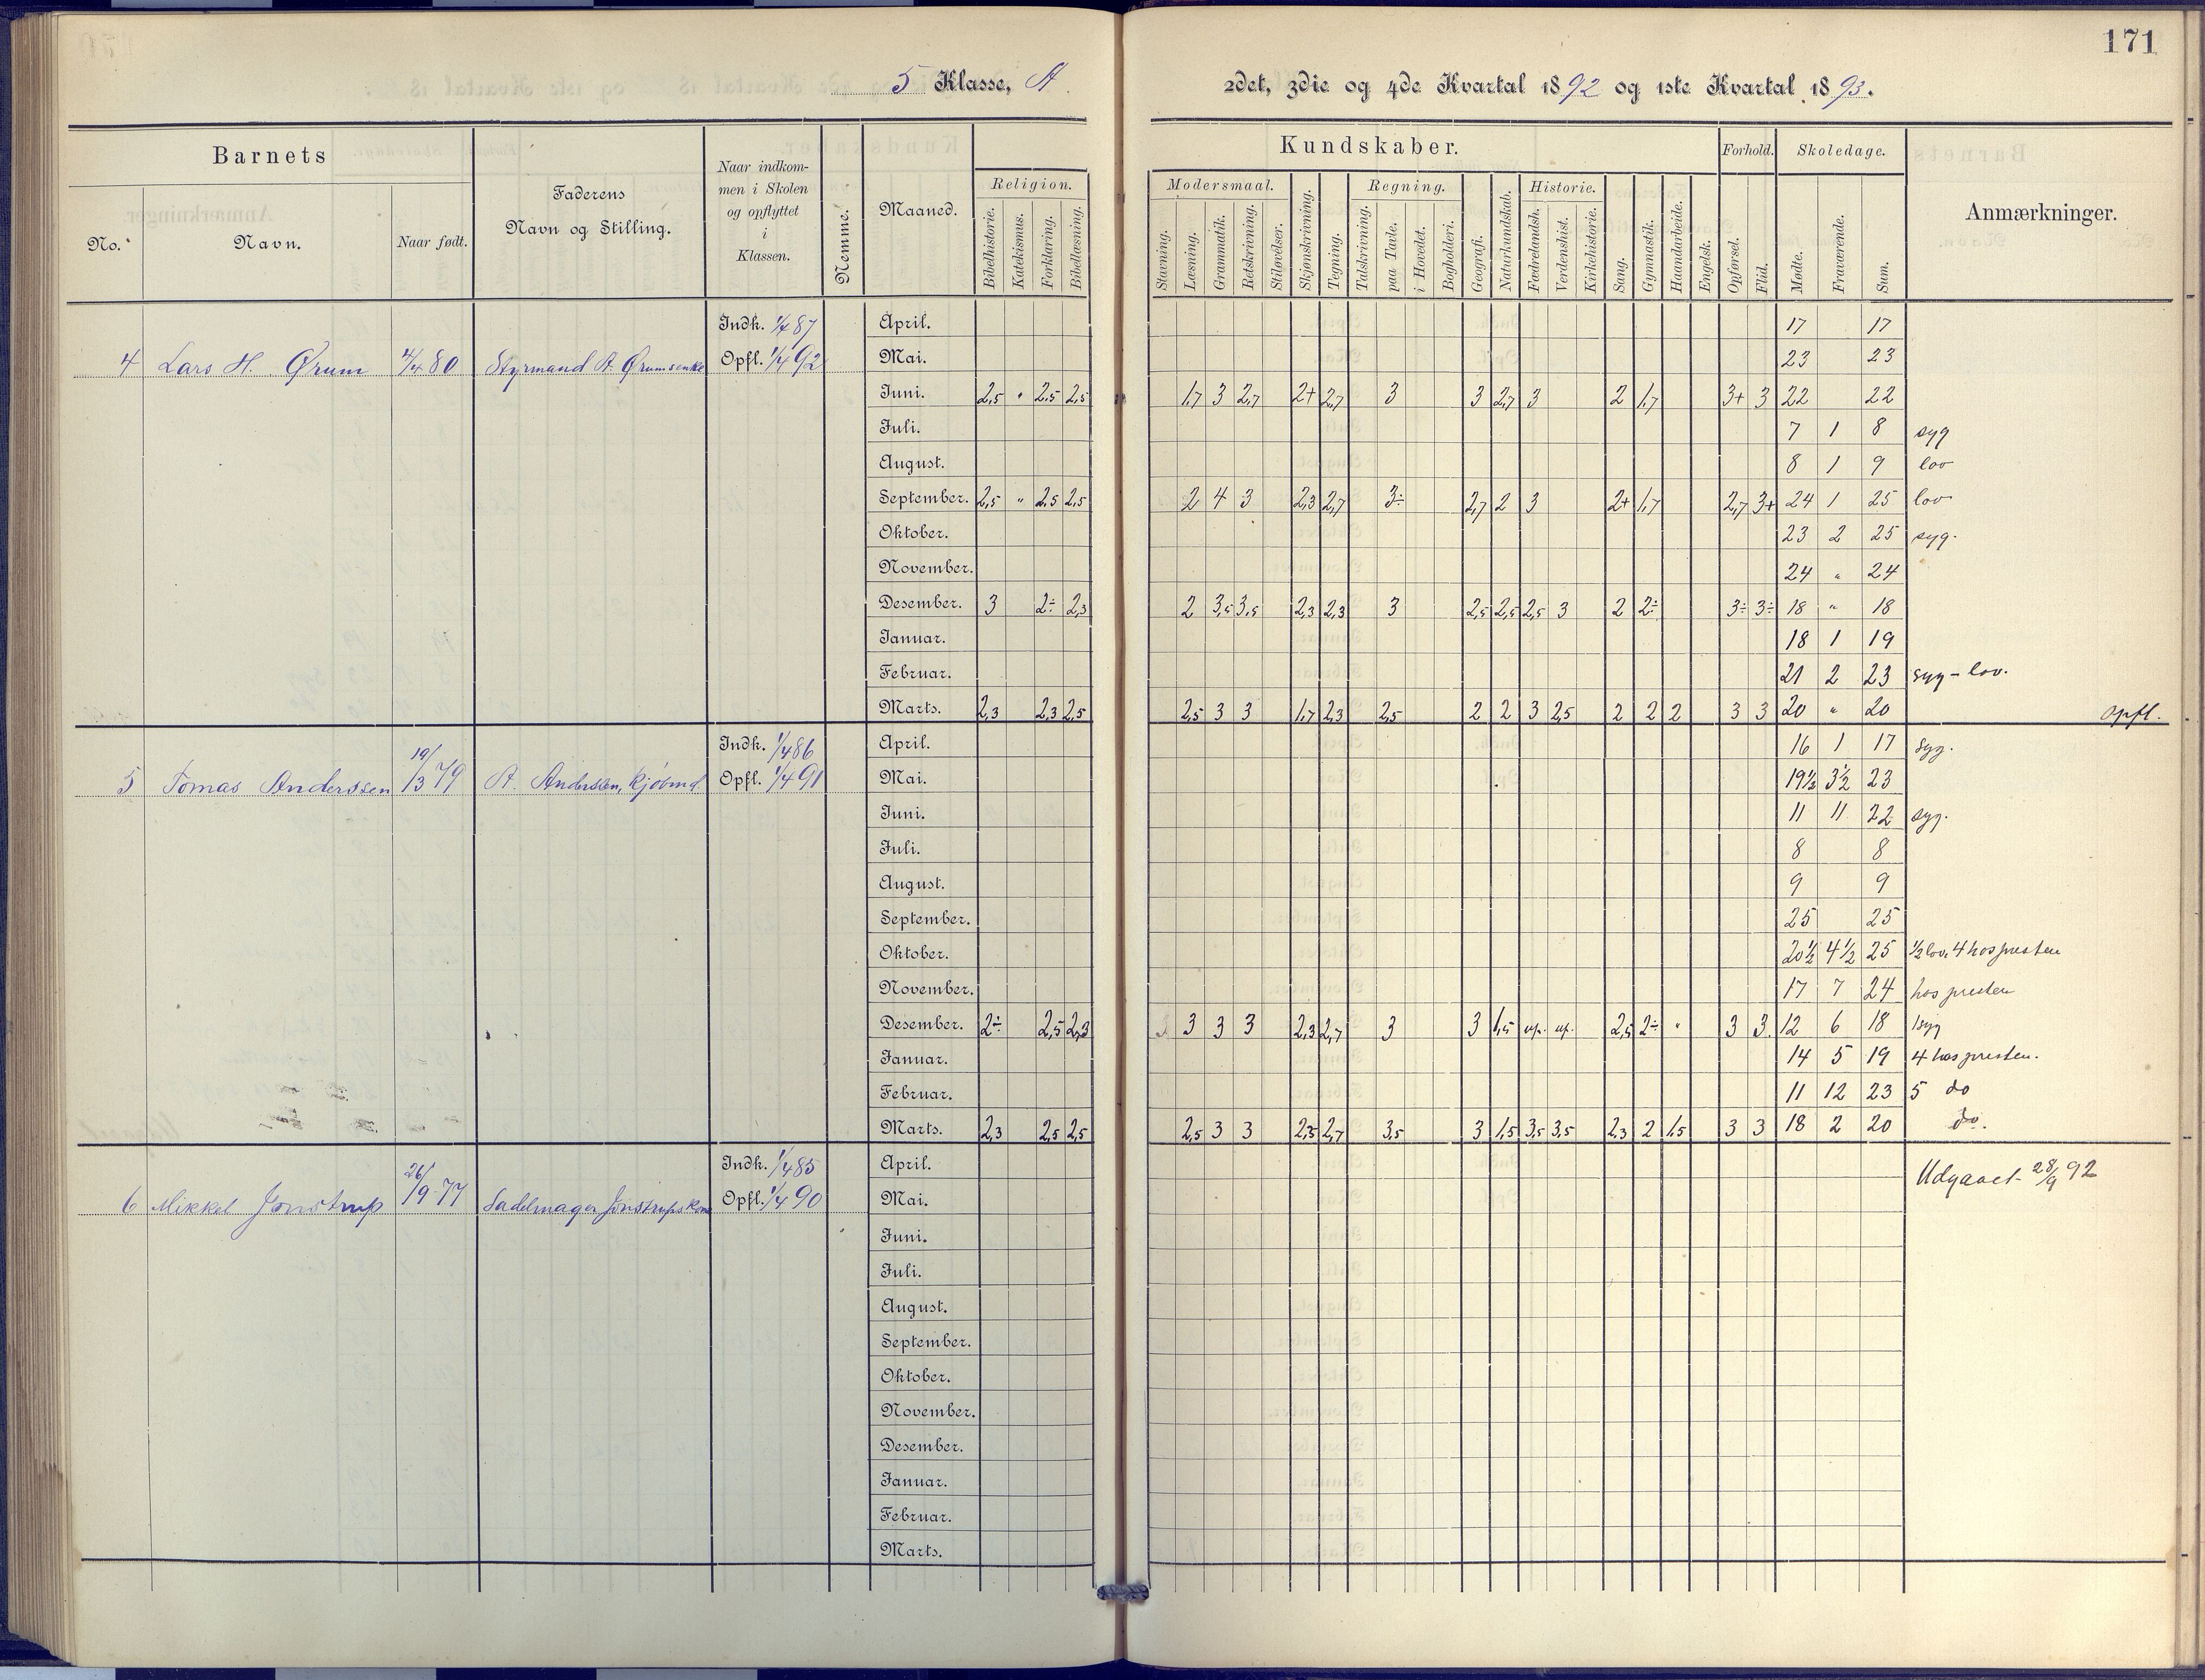 171
5 Klasse, A.
2det, 3die og 4de Kvartal 1892 og 1ste Kvartal 1893.
Barnets
No.
Navn.
Naar født.
Faderens
Navn og Stilling.
Naar indkom-
men i Skolen
og opflyttet
i
Klassen.
Nemme.
Maaned.
Kundskaber.
Religion.
Bibelhistorie.
Katekismus.
Forklaring.
Bibellæsning.
Modersmaal.
Stavning.
Læsning.
Grammatik.
Retskrivning.
Stiløvelser.
Skjønskrivning.
Tegning.
Regning.
Talskrivning.
paa Tavle.
i Hovedet.
Bogholderi.
Geografi.
Naturkundskab.
Historie.
Fædrelandsh.
Verdenshist.
Kirkehistorie.
Sang.
Gymnastik.
Haandarbeide.
Engelsk.
Forhold.
Opførsel.
Flid.
Skoledage.
Mødte.
Fraværende.
Sum.
Anmærkninger.
Indk. 1/4 87 April. 17 17
4 Lars H. Ørum 4/4 80 Styrmand A. Ørums enke Opfl. 1/4 92 Mai. 23 23
Juni. 2,5 " 2,5 2,5 1,7 3 2,7 2+ 2,7 3 3 2,7 3 2 1,7 3+ 3 22 22
Juli. 7 1 8 syg
August. 8 1 9 lov
September. 2,5 " 2,5 2,5 2 4 3 2,3 2,7 3÷ 2,7 2 3 2+ 1,7 2,7 3+ 24 1 25 lov
Oktober. 23 2 25 syg.
November. 24 " 24
Desember. 3 2÷ 2,3 2 3,5 3,5 2,3 2,3 3 2,5 2,5 2,5 3 2 2÷ 3÷ 3÷ 18 " 18
Januar. 18 1 19
Februar. 21 2 23 syg - lov.
Marts. 2,3 2,3 2,5 2,5 3 3 1,7 2,3 2,5 2 2 3 2,5 2 2 2 3 3 20 " 20 opfl.
Indk. 1/4 86 April. 16 1 17 syg.
5 Tomas Anderssen 19/3 79 A. Anderssen, kjøbmd. Opfl. 1/4 91 Mai. 19½ 3½ 23
Juni. 11 11 22 syg.
Juli. 8 8
August. 9 9
September. 25 25
Oktober. 20½ 4½ 25 ½ lov. 4 hos presten
November. 17 7 24 hos presten
Desember. 2÷ 2,5 2,3 3 3 3 2,3 2,7 3 3 1,5 up. up. 2,5 2÷ " 3 3 12 6 18 1 syg
Januar. 14 5 19 4 hos presten.
Februar. 11 12 23 5 do
Marts. 2,3 2,5 2,5 2,5 3 3 2,5 2,7 3,5 3 1,5 3,5 3,5 2,3 2 1,5 3 3 18 2 20 do.
Indk. 1/4 85 April. Udgaaet 28/9 92
6 Mikkel Jonstrup 26/9 77 Sadelmager Jonstrups kone Opfl. 1/4 90 Mai.
Juni.
Juli.
August.
September.
Oktober.
November.
Desember.
Januar.
Februar.
Marts.